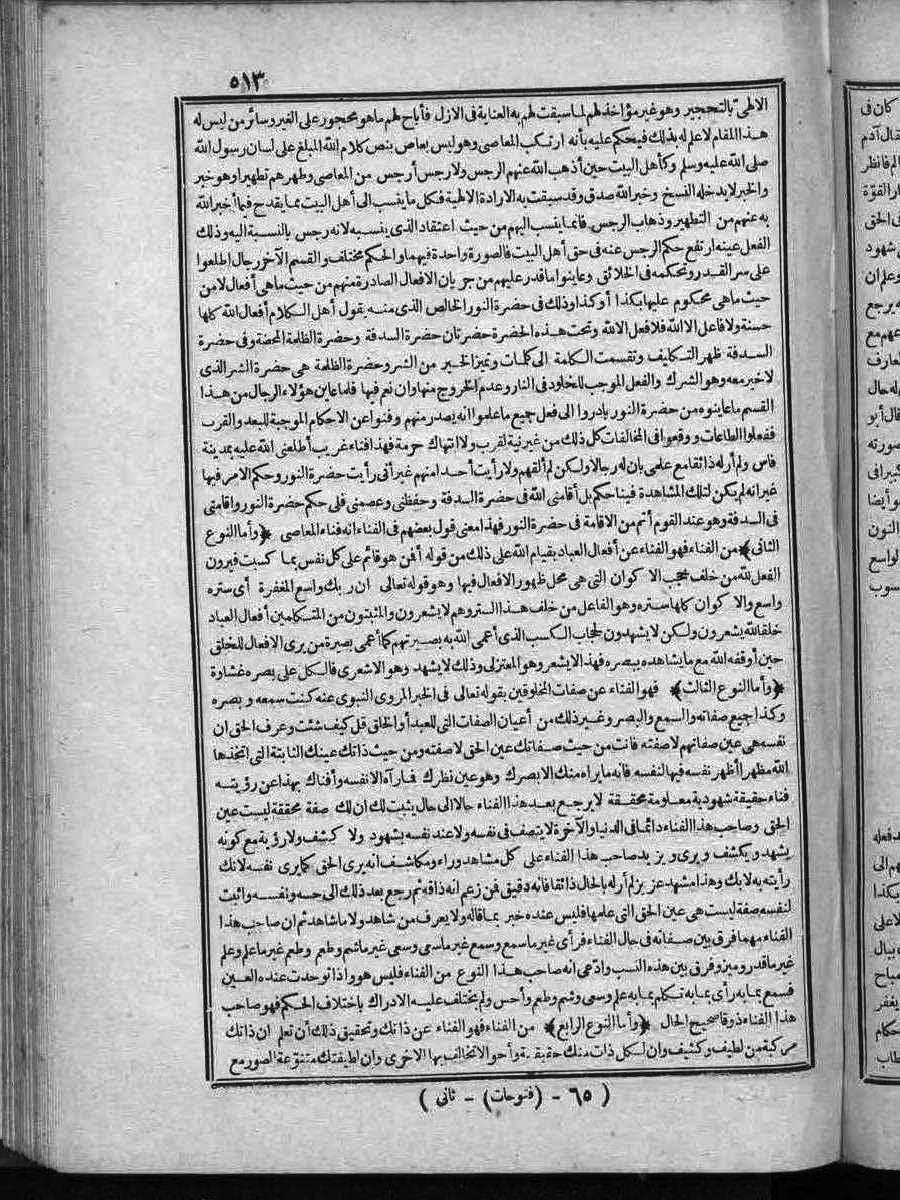 ٥١٣
الالهىّ بالتحجير وهو غير مؤاخذ لهم لما سبقت لهم به العناية فى الازل فأباح لهم ما هو محجور على الغير وسائر من ليس له
هذا المقام لا علم له بذلك فيحكم عليه بأنه ارتكب المعاصى وهو ليس بعاص بنص كلام الله المبلغ على لسان رسول الله
صلى الله عليه وسلم وكأهل البيت حين أذهب الله عنهم الرجس ولا رجس أرجس من المعاصى وطهرهم تطهيرا وهو خبر
والخبر لا يدخله النسخ وخبر الله صدق وقد سبقت به الارادة الالهية فكل ما ينسب الى أهل البيت مما يقدح فيما أخبر الله
به عنهم من التطهير وذهاب الرجس فانما ينسب اليهم من حيث اعتقاد الذى ينسبه لانه رجس بالنسبة اليه وذلك
الفعل عينه ارتفع حكم الرجس عنه فى حق أهل البيت فالصورة واحدة فيهما والحكم مختلف والقسم الآخر رجال اطلعوا
على سر القدر وتحكمه فى الخلائق وعاينوا ما قدر عليهم من جريان الافعال الصادرة منهم من حيث ما هى أفعال لا من
حيث ما هى محكوم عليها بكذا أو كذا وذلك فى حضرة النور الخالص الذى منه يقول أهل الكلام أفعال الله كلها
حسنة ولا فاعل الا الله فلا فعل الا لله وتحت هذه الحضرة حضرتان حضرة السدفة وحضرة الظلمة المحضة وفى حضرة
السدفة ظهر التكليف وتقسمت الكلمة الى كلمات وتميز الخير من الشر وحضرة الظلمة هى حضرة الشر الذى
لا خير معه وهو الشرك والفعل الموجب للخلود فى النار وعدم الخروج منها وان نعم فيها فلما عاين هؤلاء الرجال من هذا
القسم ما عاينوه من حضرة النور بادروا الى فعل جميع ما علموا انه يصدر منهم وفنوا عن الاحكام الموجبة للبعد والقرب
ففعلوا الطاعات ووقعوا فى المخالفات كل ذلك من غير نية لقرب ولا انتهاك حرمة فهذا فناء غريب أطلعنى الله عليه بمدينة
فاس ولم أر له ذائقا مع علمى بان له رجالا ولكن لم ألقهم ولا رأيت أحدا منهم غير أنى رأيت حضرة النور وحكم الامر فيها
غير انه لم يكن لتلك المشاهدة فينا حكم بل أقامنى الله فى حضرة السدفة وحفظنى وعصمنى فلى حكم حضرة النور واقامتى
فى السدفة وهو عند القوم أتم من الاقامة فى حضرة النور فهذا معنى قول بعضهم فى الفناء انه فناء المعاصى ﴿وأما النوع
الثانى﴾ من الفناء فهو الفناء عن أفعال العباد بقيام الله على ذلك من قوله أفمن هو قائم على كل نفس بما كسبت فيرون
الفعل لله من خلف حجب الاكوان التى هى محل ظهور الافعال فيها وهو قوله تعالى ان ربك واسع المغفرة أى ستره
واسع والاكوان كلها ستره وهو الفاعل من خلف هذا الستر وهم لا يشعرون والمثبتون من المتكلمين أفعال العباد
خلقا لله يشعرون ولكن لا يشهدون لحجاب الكسب الذى أعمى الله به بصيرتهم كما أعمى بصيرة من يرى الافعال للخلق
حين أوقفه الله مع ما يشاهده ببصره فهذا لا يشعر وهو المعتزلى وذلك لا يشهد وهو الاشعرى فالكل على بصره غشاوة
﴿وأما النوع الثالث﴾ فهو الفناء عن صفات المخلوقين بقوله تعالى فى الخبر المروى النبوى عنه كنت سمعه وبصره
وكذا جميع صفاته والسمع والبصر وغير ذلك من أعيان الصفات التى للعبد أو الخلق قل كيف شئت وعرف الحق ان
نفسه هى عين صفاتهم لا صفته فانت من حيث صفاتك عين الحق لا صفته ومن حيث ذاتك عينك الثابتة التى اتخذها
الله مظهرا أظهر نفسه فيها لنفسه فانه ما يراه منك الا بصرك وهو عين نظرك فما رآه الا نفسه وأفناك بهذا عن رؤيته
فناء حقيقة شهودية معلومة محققة لا يرجع بعد هذا الفناء حالا الى حال يثبت لك ان لك صفة محققة ليست عين
الحق وصاحب هذا الفناء دائما فى الدنيا والآخرة لا يتصف فى نفسه ولا عند نفسه بشهود ولا كشف ولا رؤية مع كونه
يشهد ويكشف ويرى ويزيد صاحب هذا الفناء على كل مشاهد وراء ومكاشف انه يرى الحق كما يرى نفسه لانك
رأيته به لا بك وهذا مشهد عزيز لم أر له بالحال ذائقا فانه دقيق فمن زعم انه ذاقه ثم رجع بعد ذلك الى حسه ونفسه واثبت
لنفسه صفة ليست هى عين الحق التى علمها فليس عنده خبر بما قاله ولا يعرف من شاهد ولا ما شاهد ثم ان صاحب هذا
الفناء مهما فرق بين صفاته فى حال الفناء فرأى غير ما سمع وسمع غير ما سعى وسعى غير ما شم وطعم وطعم غير ما علم وعلم
غير ما قدر وميز وفرق بين هذه النسب وادّعى انه صاحب هذا النوع من الفناء فليس هو واذا توحدت عنده العين
فسمع بما به رأى بما به تكلم بما به علم وسعى وشم وطعم وأحس ولم يختلف عليه الادراك باختلاف الحكم فهو صاحب
هذا الفناء ذوقا صحيح الحال ﴿وأما النوع الرابع﴾ من الفناء فهو الفناء عن ذاتك وتحقيق ذلك أن تعلم ان ذاتك
مركبة من لطيف وكثيف وان لكل ذات منك حقيقة وأحوالا تخالف بها الاخرى وان لطيفتك متنوّعة الصور مع
( ٦٥ - (فتوحات) - ثانى )